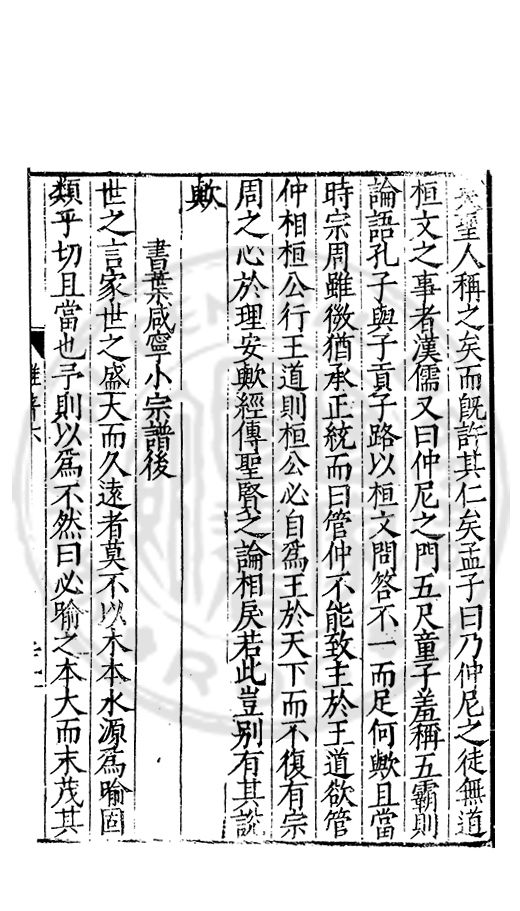 聖人稱之矣而旣許其仁矣孟子曰乃仲尼之徒無道
桓文之事者漢儒又曰仲尼之門五尺童子羞稱五霸則
論語孔子與子貢子路以桓文問答不一而足何歟且當
時宗周雖微猶承正統而曰管仲不能致主於王道欲管
仲相桓公行王道則桓公必自爲王於天下而不復有宗
周之心於理安歟經傳聖賢之論相戾若此豈別有其說
歟
書葉咸寧小宗譜後
世之言家世之盛大而久遠者莫不以木本水源爲喻固
類乎切且當也予則以爲不然曰必喻之本大而末茂其